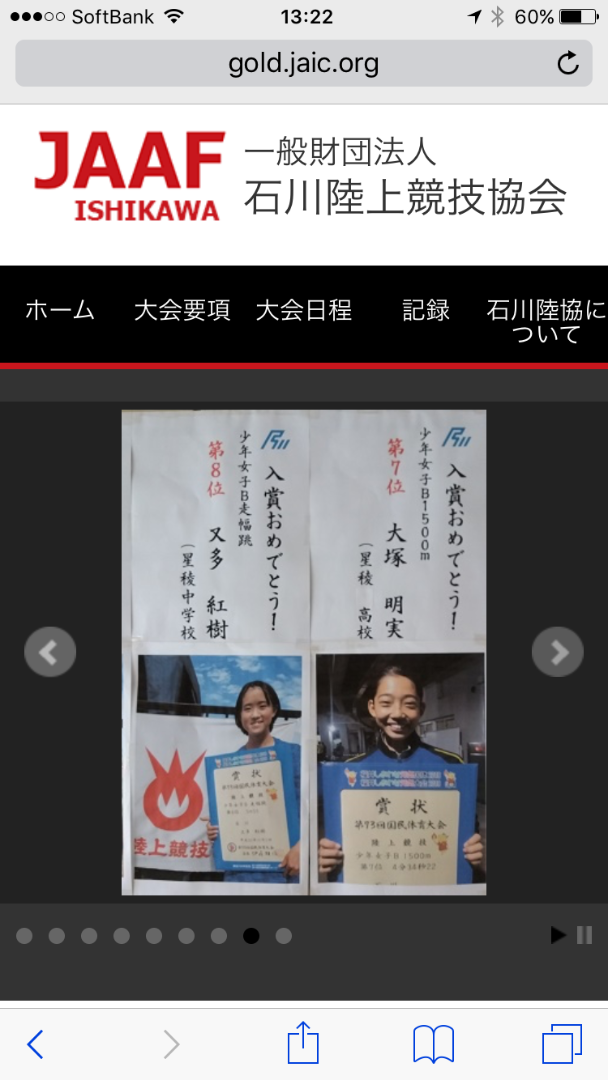 SoftBank
13:22
60%
gold.jaic.org
JAAF
ISHIKAWA
一般財団法人
石川陸上競技協会
ホーム
大会要項
大会日程
記録
石川陸協に
ついて
入賞おめでとう!
少年女子B1500m
第7位
大塚 明実
(星稜 高校
入賞おめでとう!
少年女子B走幅跳
第8位
又多 紅樹
(星稜中学校
陸上競技
賞状
第73回国民体育大会
陸上競技
賞状
第73回国民体育大会
陸上競技
少年女子B1500m